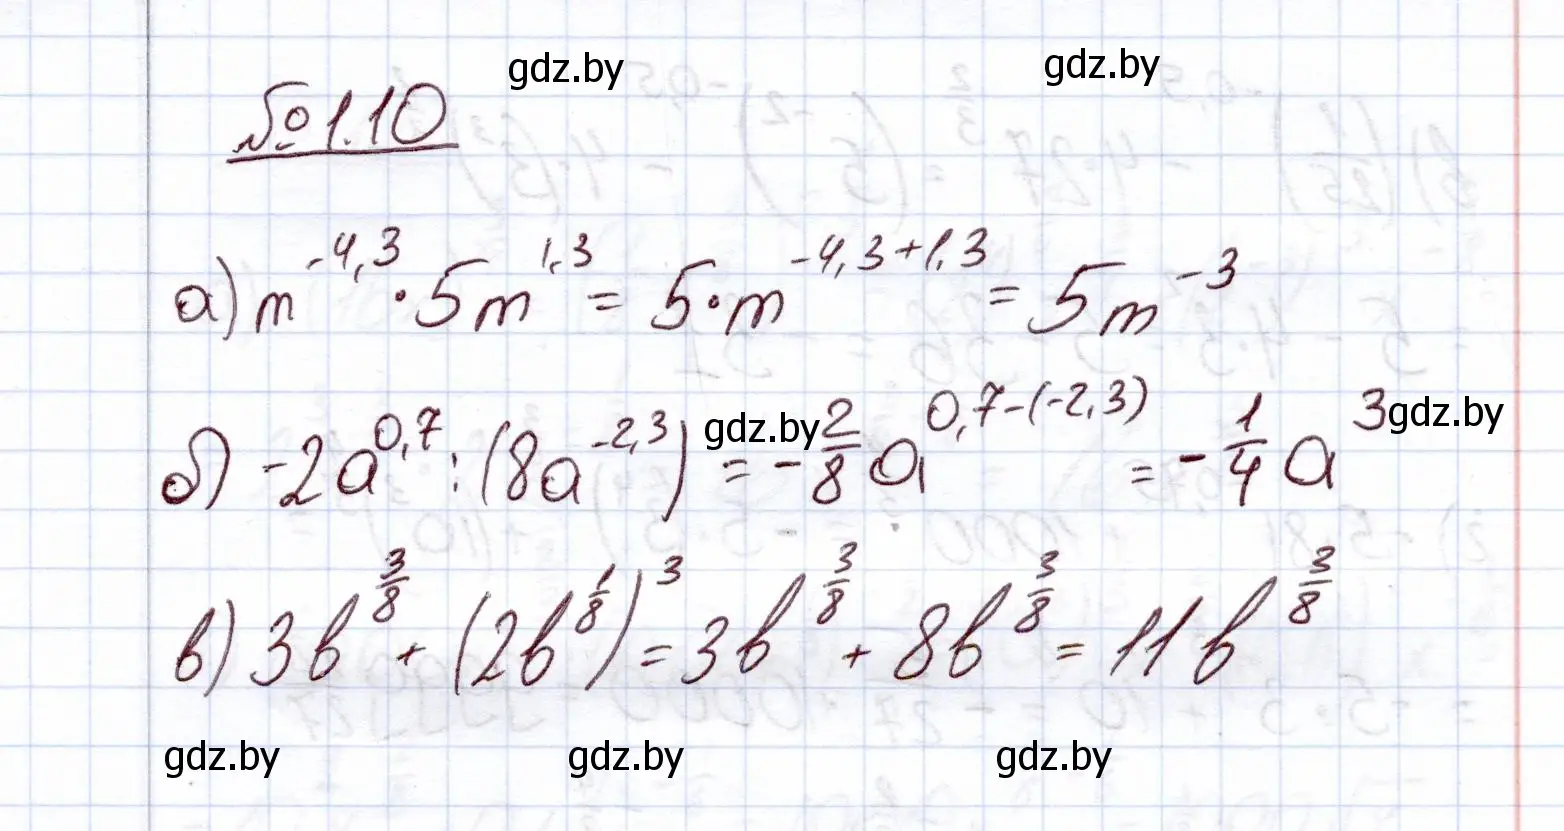 gdz.by gdz.by
№ 1.10
а) m^{-4,3} · 5m^{1,3} = 5 · m^{-4,3+1,3} = 5m^{-3}
б) -2a^{0,7} : (8a^{-2,3}) = -\frac{2}{8}a^{0,7-(-2,3)} = -\frac{1}{4}a^{3}
gdz.by gdz.by
в) 3b^{\frac{3}{8}} + (2b^{\frac{1}{8}})^{3} = 3b^{\frac{3}{8}} + 8b^{\frac{3}{8}} = 11b^{\frac{3}{8}}
gdz.by gdz.by gdz.by